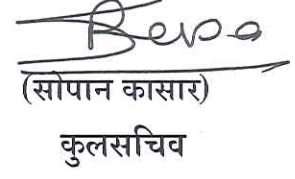 (सोपान कासार)
कुलसचिव